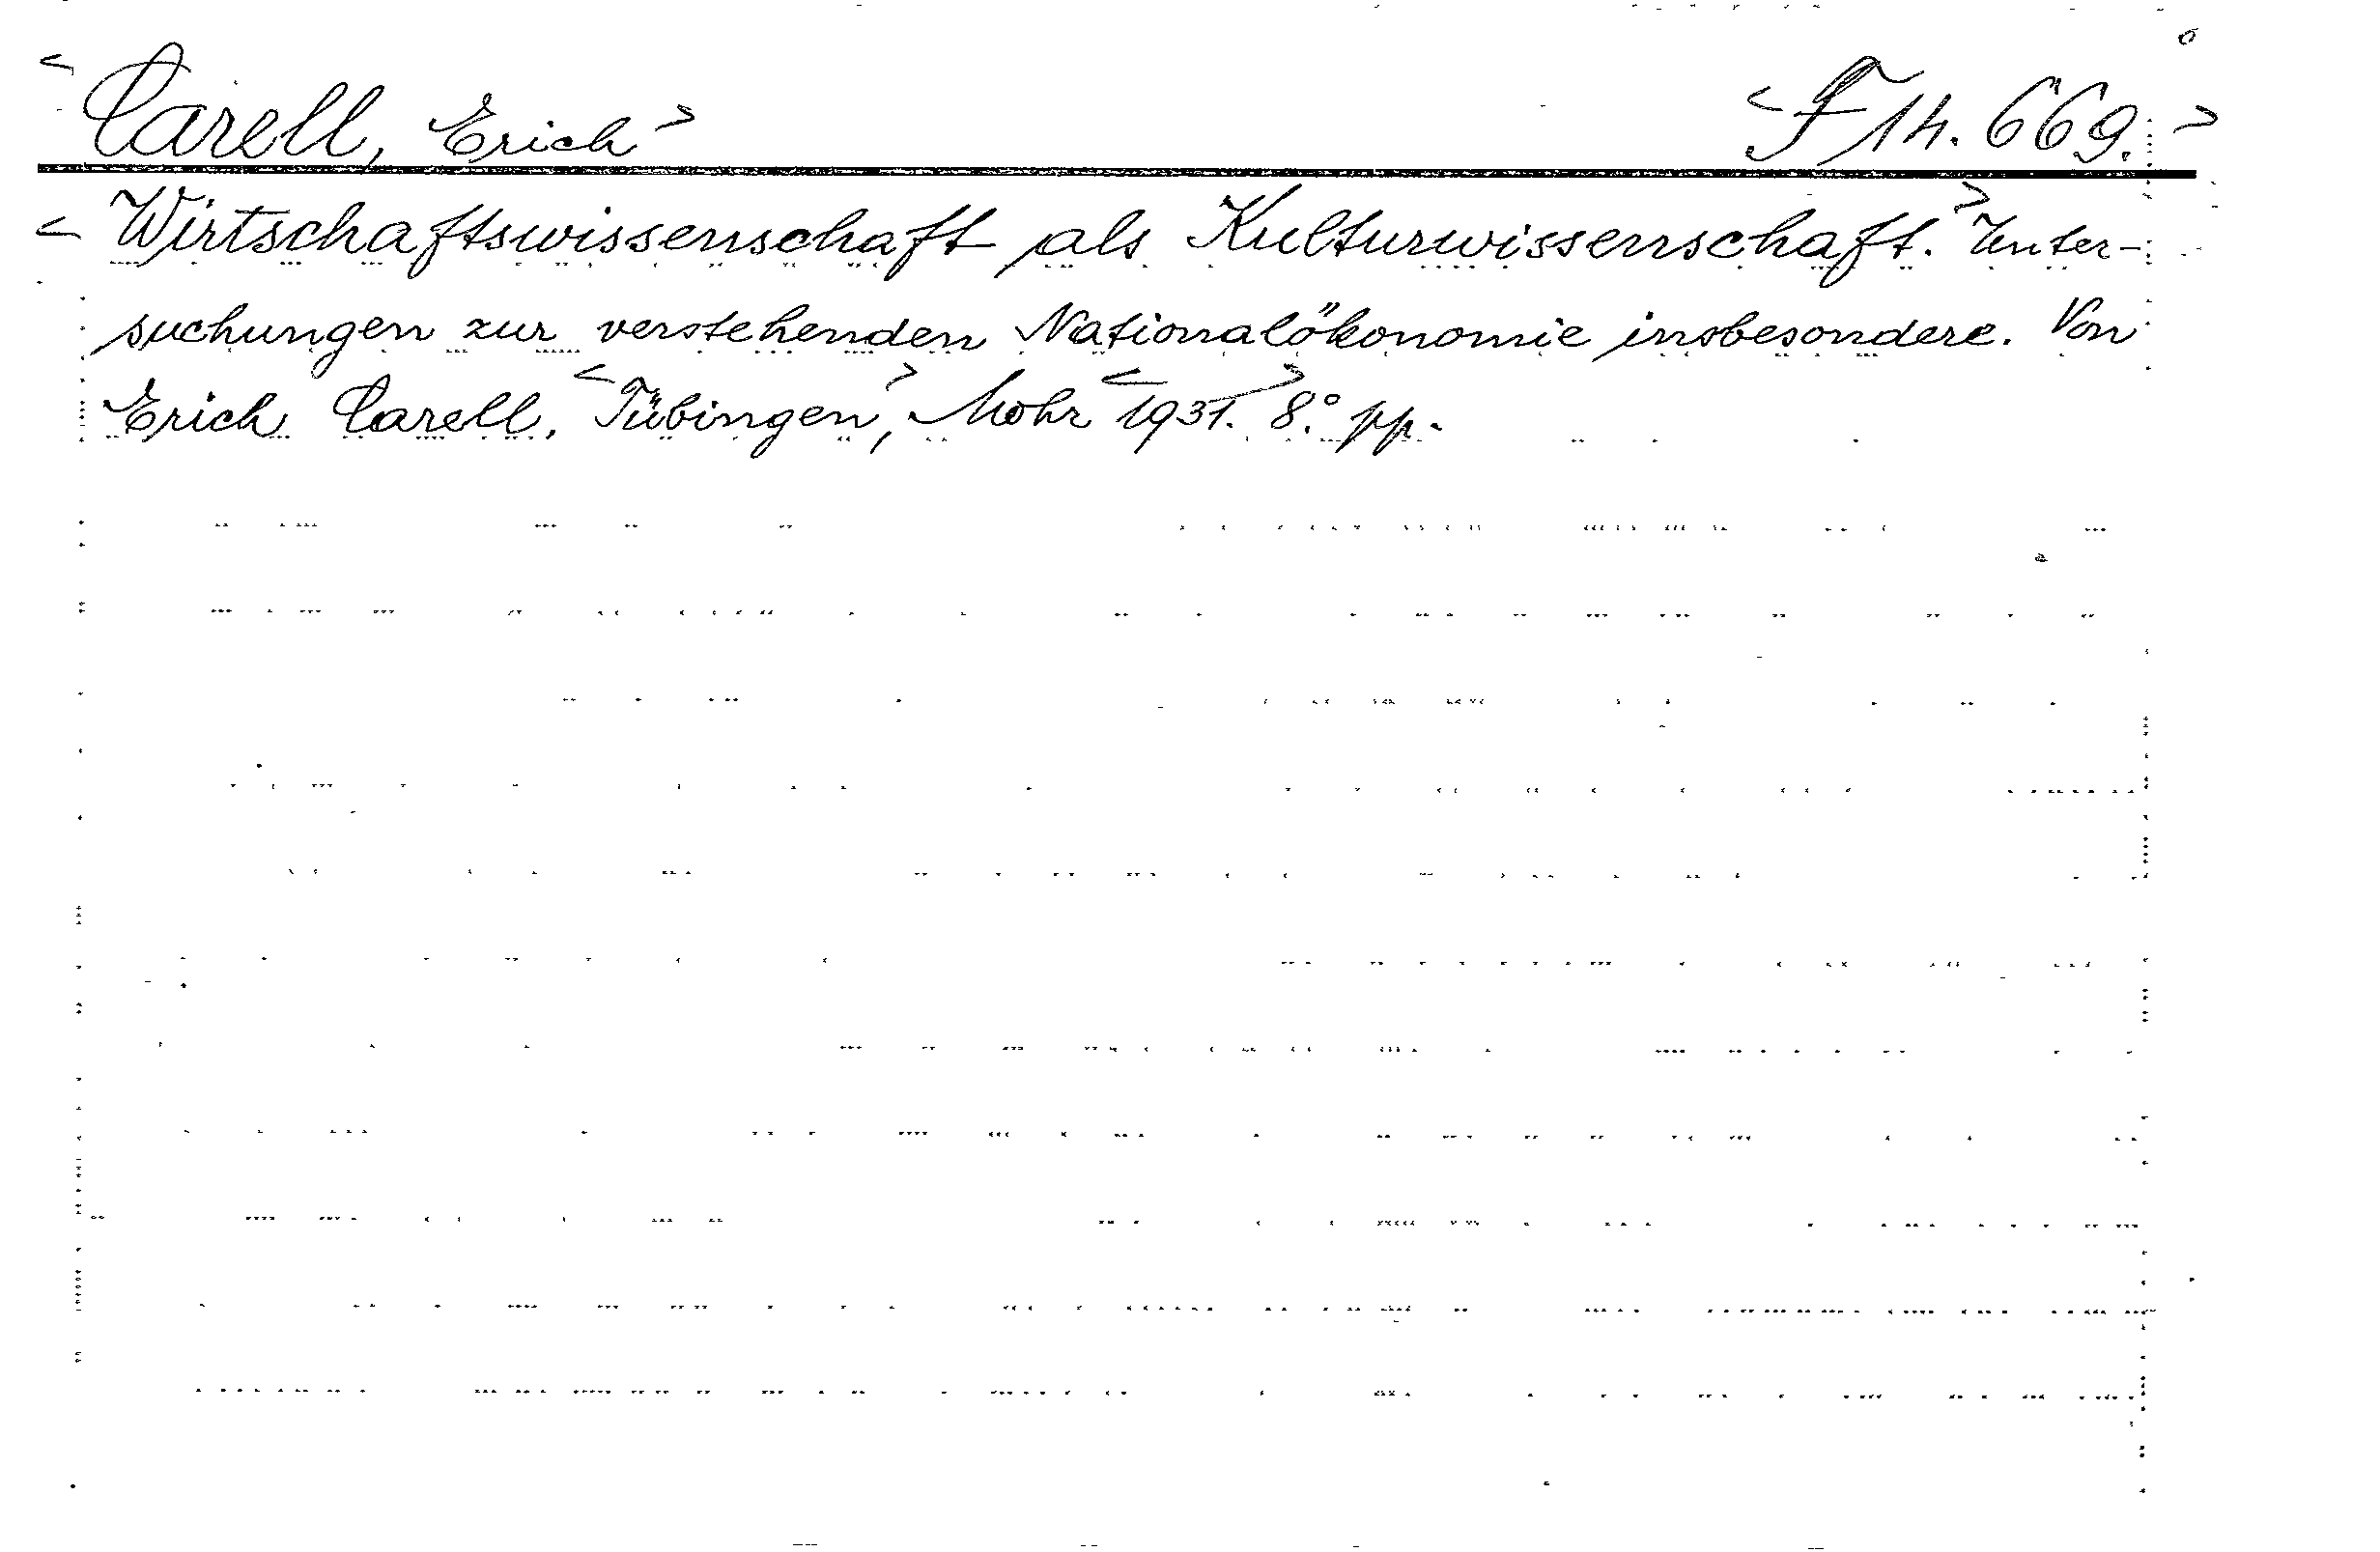 <Carell, Erich> <F 14.669.>
<Wirtschaftswissenschaft als Kulturwissenschaft.> Unter-
suchungen zur verstehenden Nationalökonomie insbesondere. Von
Erich Carell. <Tübingen>, Mohr <1931.> 8.° pp.